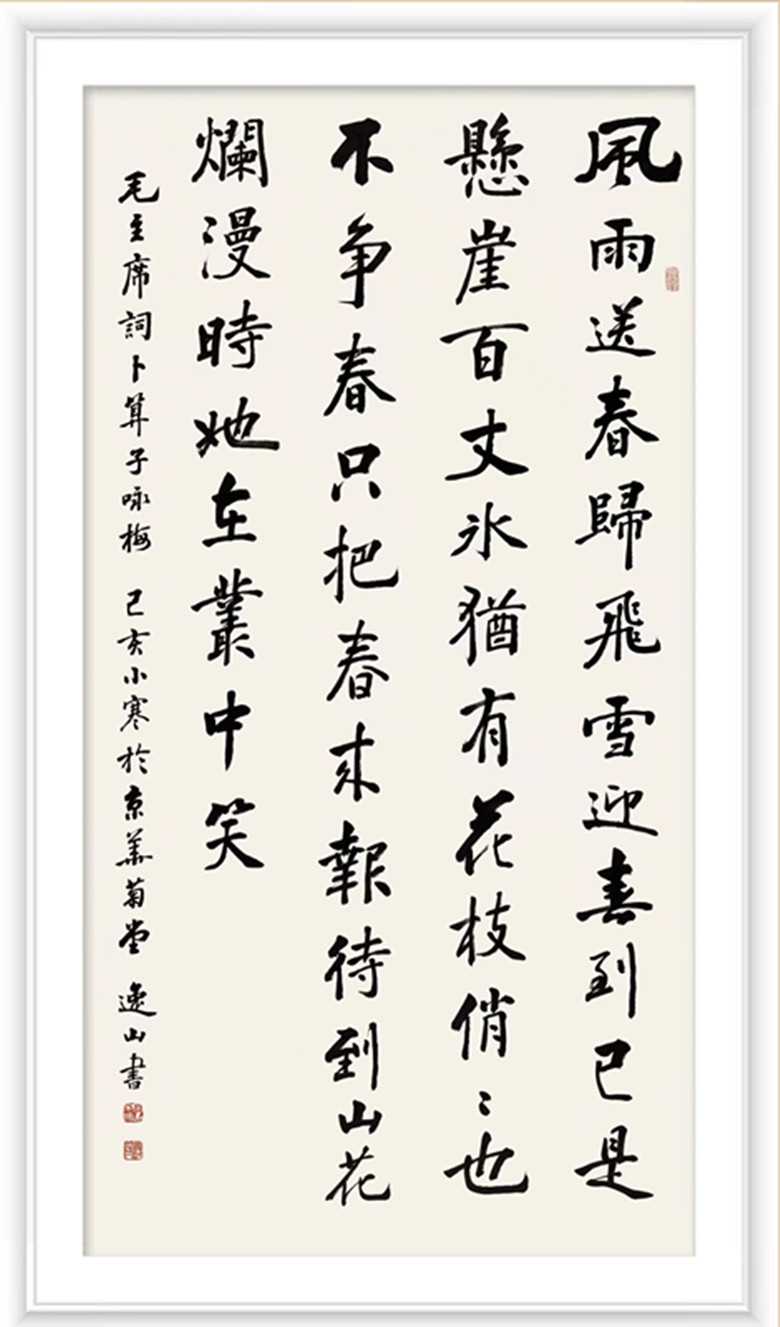 風雨送春歸飛雪迎春到已是
懸崖百丈氷猶有花枝俏〻也
不争春只把春来報待到山花
爛漫時她在叢中笑
毛主席詞卜算子咏梅 己亥小寒於京華菊堂 逸山書